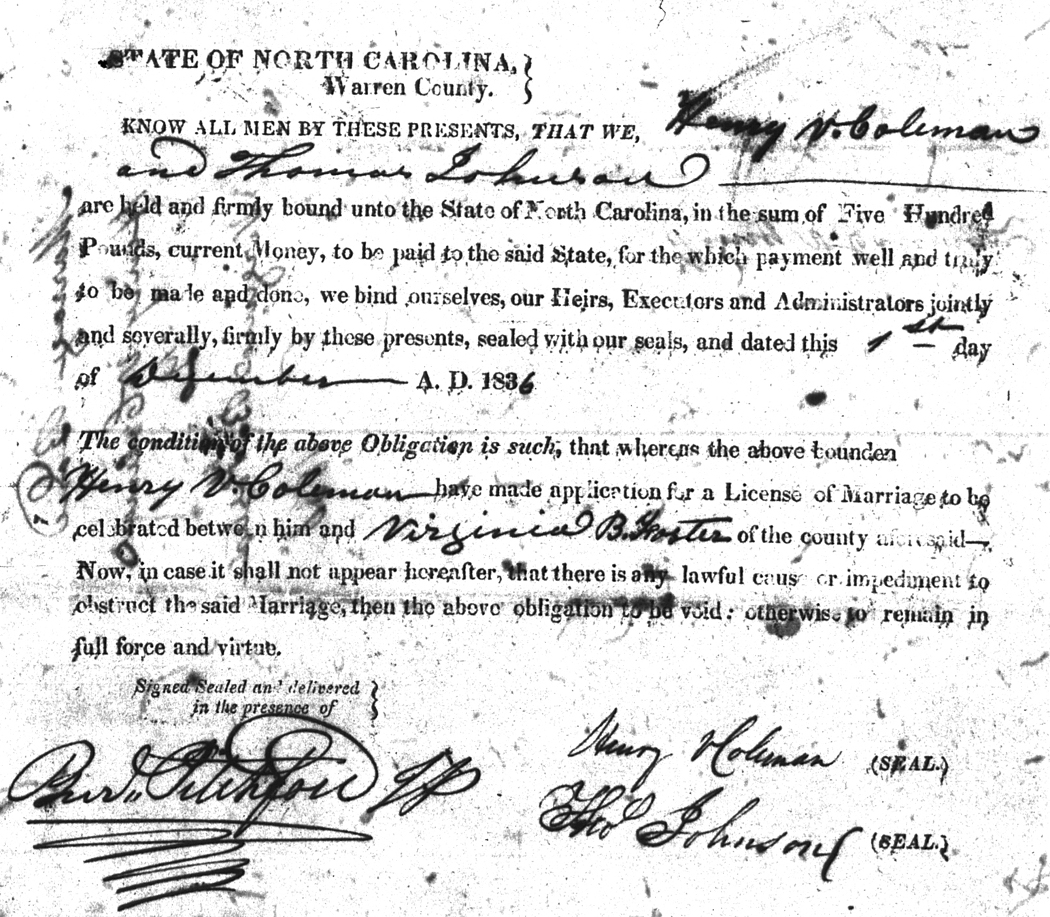 STATE OF NORTH CAROLINA,
Warren County.
KNOW ALL MEN BY THESE PRESENTS, THAT WE, Henry V. Coleman
and Thomas Johnson
are held and firmly bound unto the State of North Carolina, in the sum of Five Hundred
Pounds, current Money, to be paid to the said State, for the which payment well and truly
to be made and done, we bind ourselves, our Heirs, Executors and Administrators jointly
and severally, firmly by these presents, sealed with our seals, and dated this 1st day
of December A. D. 1836
The condition of the above Obligation is such, that whereas the above bounden
Henry V. Coleman have made application for a License of Marriage to be
celebrated between him and Virginia B. Foster of the county aforesaid—
Now, in case it shall not appear hereafter, that there is any lawful cause or impediment to
obstruct the said Marriage, then the above obligation to be void: otherwise to remain in
full force and virtue.
Signed Sealed and delivered
in the presence of
Henry V Coleman (SEAL.)
Thos Johnson (SEAL.)